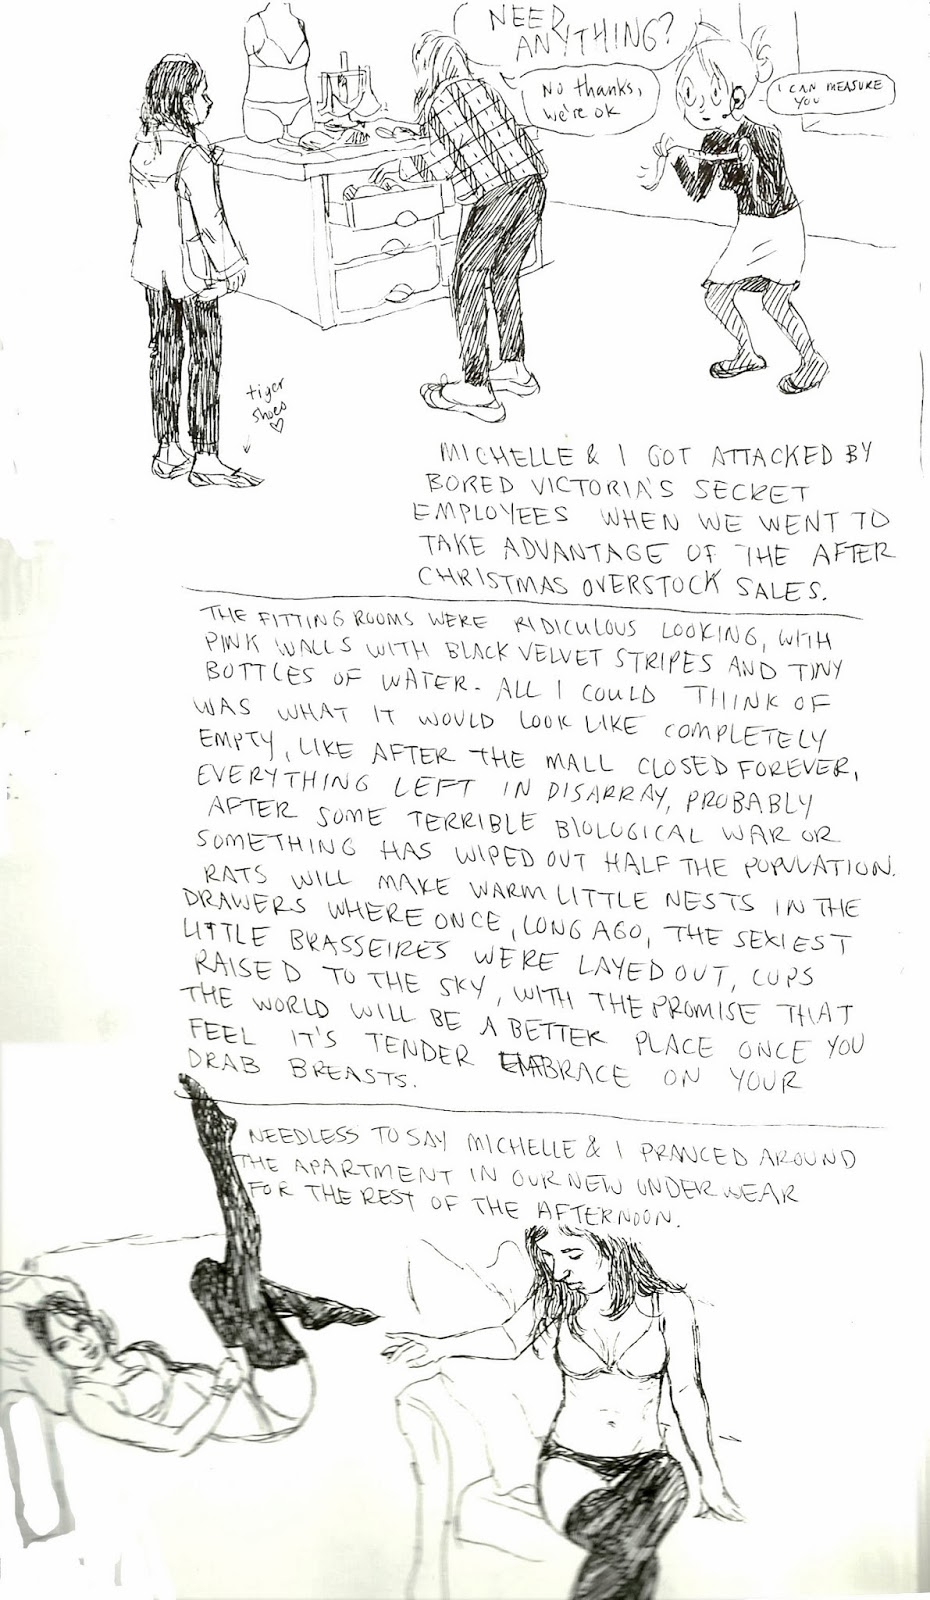 NEED
ANYTHING?
No thanks,
we're ok
I CAN MEASURE
YOU
tiger
shoes
MICHELLE & I GOT ATTACKED BY
BORED VICTORIA'S SECRET
EMPLOYEES WHEN WE WENT TO
TAKE ADVANTAGE OF THE AFTER
CHRISTMAS OVERSTOCK SALES.
THE FITTING ROOMS WERE RIDICULOUS LOOKING, WITH
PINK WALLS WITH BLACK VELVET STRIPES AND TINY
BOTTLES OF WATER. ALL I COULD THINK OF
WAS WHAT IT WOULD LOOK LIKE COMPLETELY
EMPTY, LIKE AFTER THE MALL CLOSED FOREVER,
EVERYTHING LEFT IN DISARRAY, PROBABLY
AFTER SOME TERRIBLE BIOLOGICAL WAR OR
SOMETHING HAS WIPED OUT HALF THE POPULATION.
RATS WILL MAKE WARM LITTLE NESTS IN THE
DRAWERS WHERE ONCE, LONG AGO, THE SEXIEST
LITTLE BRASSEIRES WERE LAYED OUT, CUPS
RAISED TO THE SKY, WITH THE PROMISE THAT
THE WORLD WILL BE A BETTER PLACE ONCE YOU
FEEL IT'S TENDER EMBRACE ON YOUR
DRAB BREASTS.
NEEDLESS TO SAY MICHELLE & I PRANCED AROUND
THE APARTMENT IN OUR NEW UNDERWEAR
FOR THE REST OF THE AFTERNOON.